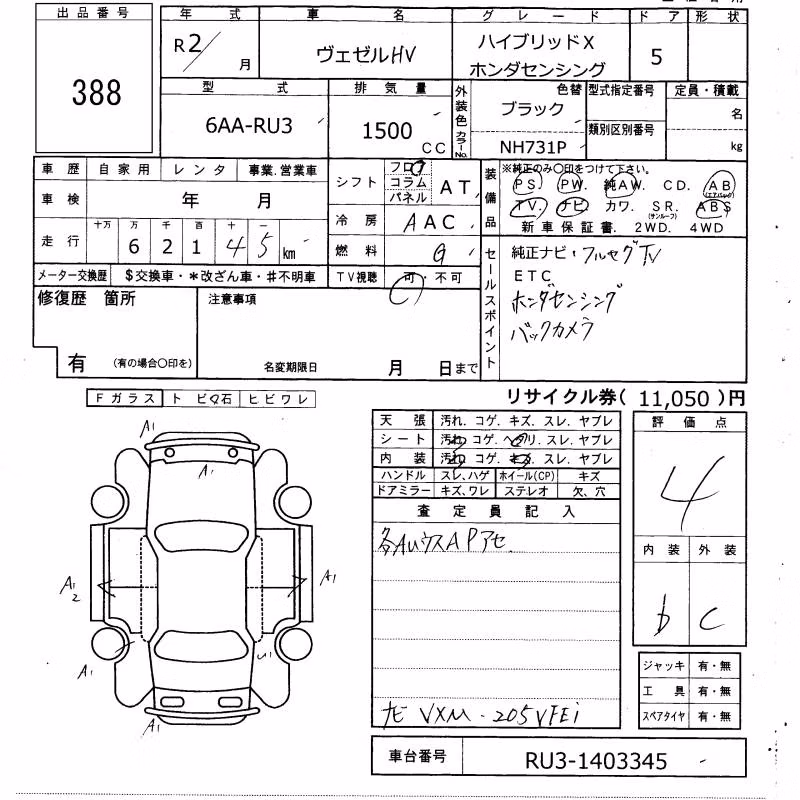 出品番号
388
年 式 車 名 グレード ドア 形状
R2/ 月 ヴェゼルHV ハイブリッドX ホンダセンシング 5
型 式 排気量 外装色 カラーNo. 色替 型式指定番号 定員・積載
6AA-RU3 1500 CC ブラック 名
NH731P 類別区別番号 kg
車歴 自家用 レンタ 事業.営業車
車検 年 月
走行 十万 万 千 百 十 一
6 2 1 4 5 km
メーター交換歴 $交換車・*改ざん車・#不明車
シフト フロア コラム パネル AT
冷房 AAC
燃料 G
TV視聴 可・不可
装備品 ※純正のみ〇印をつけて下さい。
PS. PW. 純AW. CD. AB (エアバック)
TV. ナビ. カワ. SR. (サンルーフ) ABS
新車保証書. 2WD. 4WD
セールスポイント
純正ナビ・フルセグTV
ETC
ホンダセンシング
バックカメラ
修復歴 箇所
有 (有の場合〇印を)
注意事項
名変期限日 月 日まで
リサイクル券( 11,050 )円
Fガラス トビ石 ヒビワレ
天張 汚れ. コゲ. キズ. スレ. ヤブレ
シート 汚れ. コゲ. ヘタリ. スレ. ヤブレ
内装 汚れ. コゲ. キズ. スレ. ヤブレ
ハンドル スレ、ハゲ ホイール(CP) キズ
ドアミラー キズ、ワレ ステレオ 欠、穴
評価点
4
内装 外装
b C
査定員記入
各AUウスAPアセ
ナビ VXM-205VFEi
A1
A1
A1 2
A1
A1
U1
A1
ジャッキ 有・無
工具 有・無
スペアタイヤ 有・無
車台番号 RU3-1403345